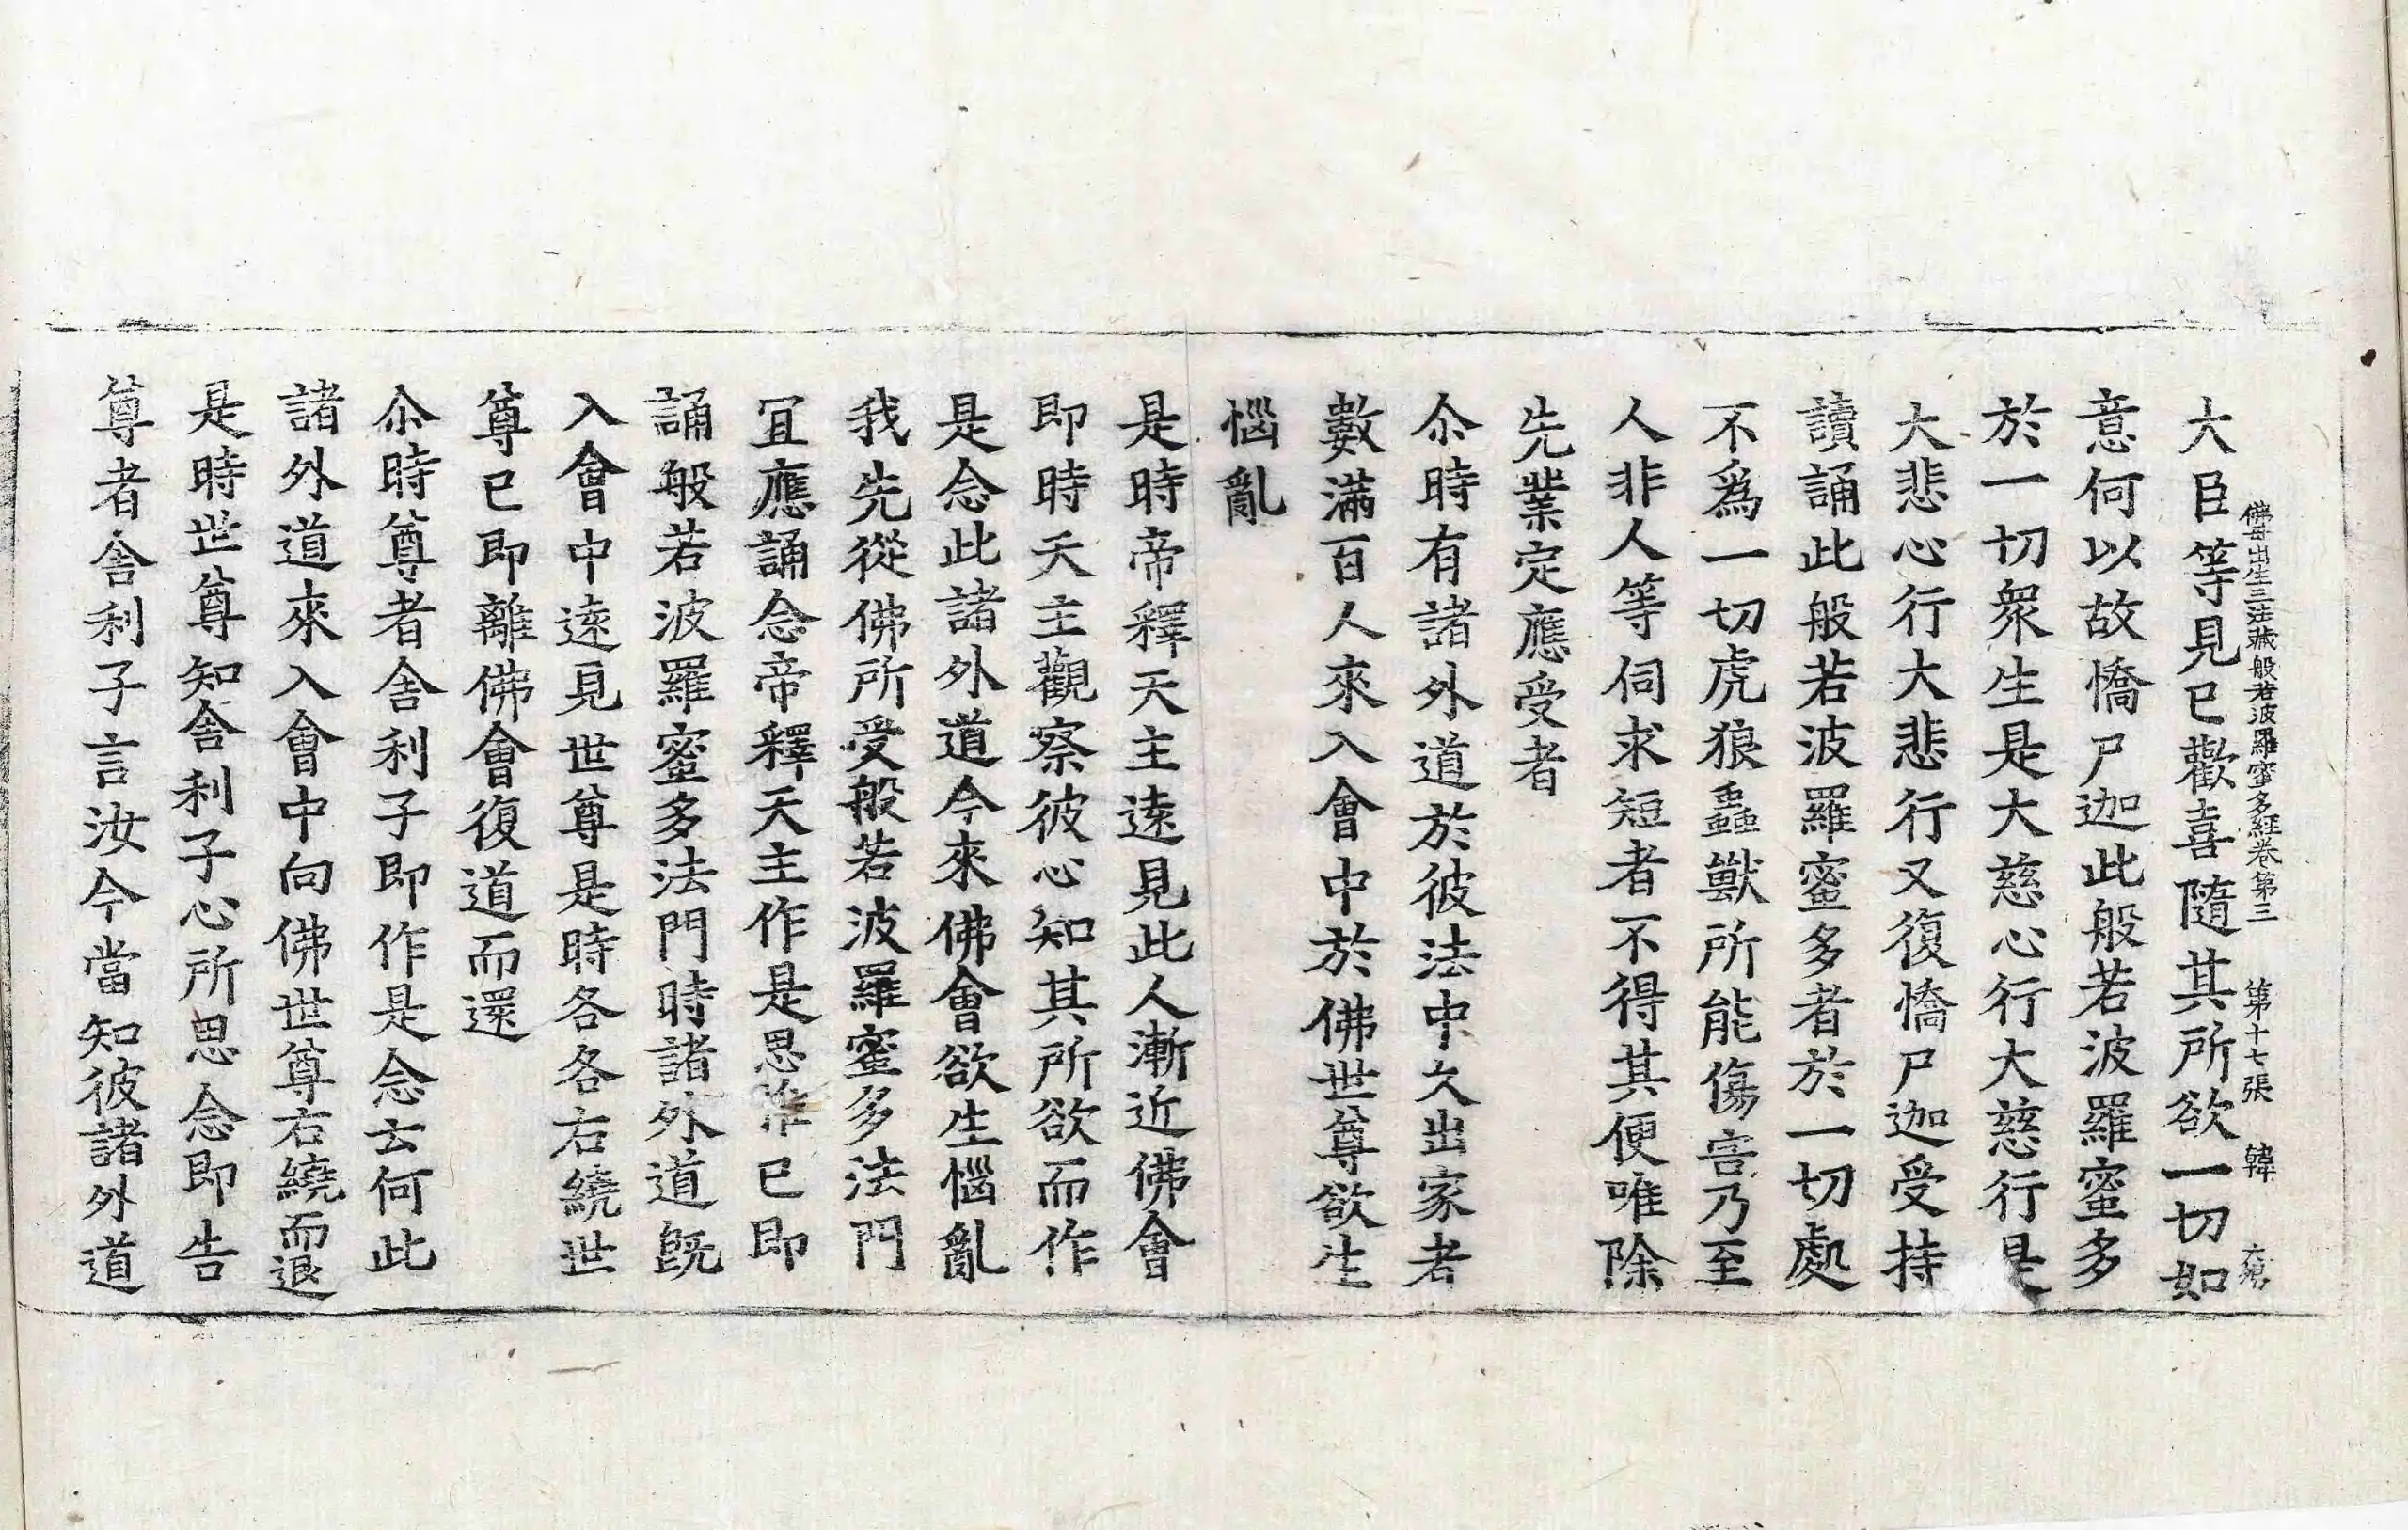 大臣等見已歡喜隨其所欲一切如
佛母出生三法藏般若波羅蜜多經卷第三 第十七張 韓
意何以故憍尸迦此般若波羅蜜多
於一切衆生是大慈心行大慈行是
大悲心行大悲行又復憍尸迦受持
讀誦此般若波羅蜜多者於一切處
不爲一切虎狼蟲獸所能傷害乃至
人非人等伺求短者不得其便唯除
先業定應受者
尒時有諸外道於彼法中久出家者
數滿百人來入會中於佛世尊欲生
惱亂
是時帝釋天主遠見此人漸近佛會
即時天主觀察彼心知其所欲而作
是念此諸外道今來佛會欲生惱亂
我先從佛所受般若波羅蜜多法門
冝應誦念帝釋天主作是思惟已即
誦般若波羅蜜多法門時諸外道旣
入會中遠見世尊是時各各右繞世
尊已即離佛會復道而還
尒時尊者舍利子即作是念云何此
諸外道來入會中向佛世尊右繞而退
是時世尊知舍利子心所思念即告
尊者舍利子言汝今當知彼諸外道